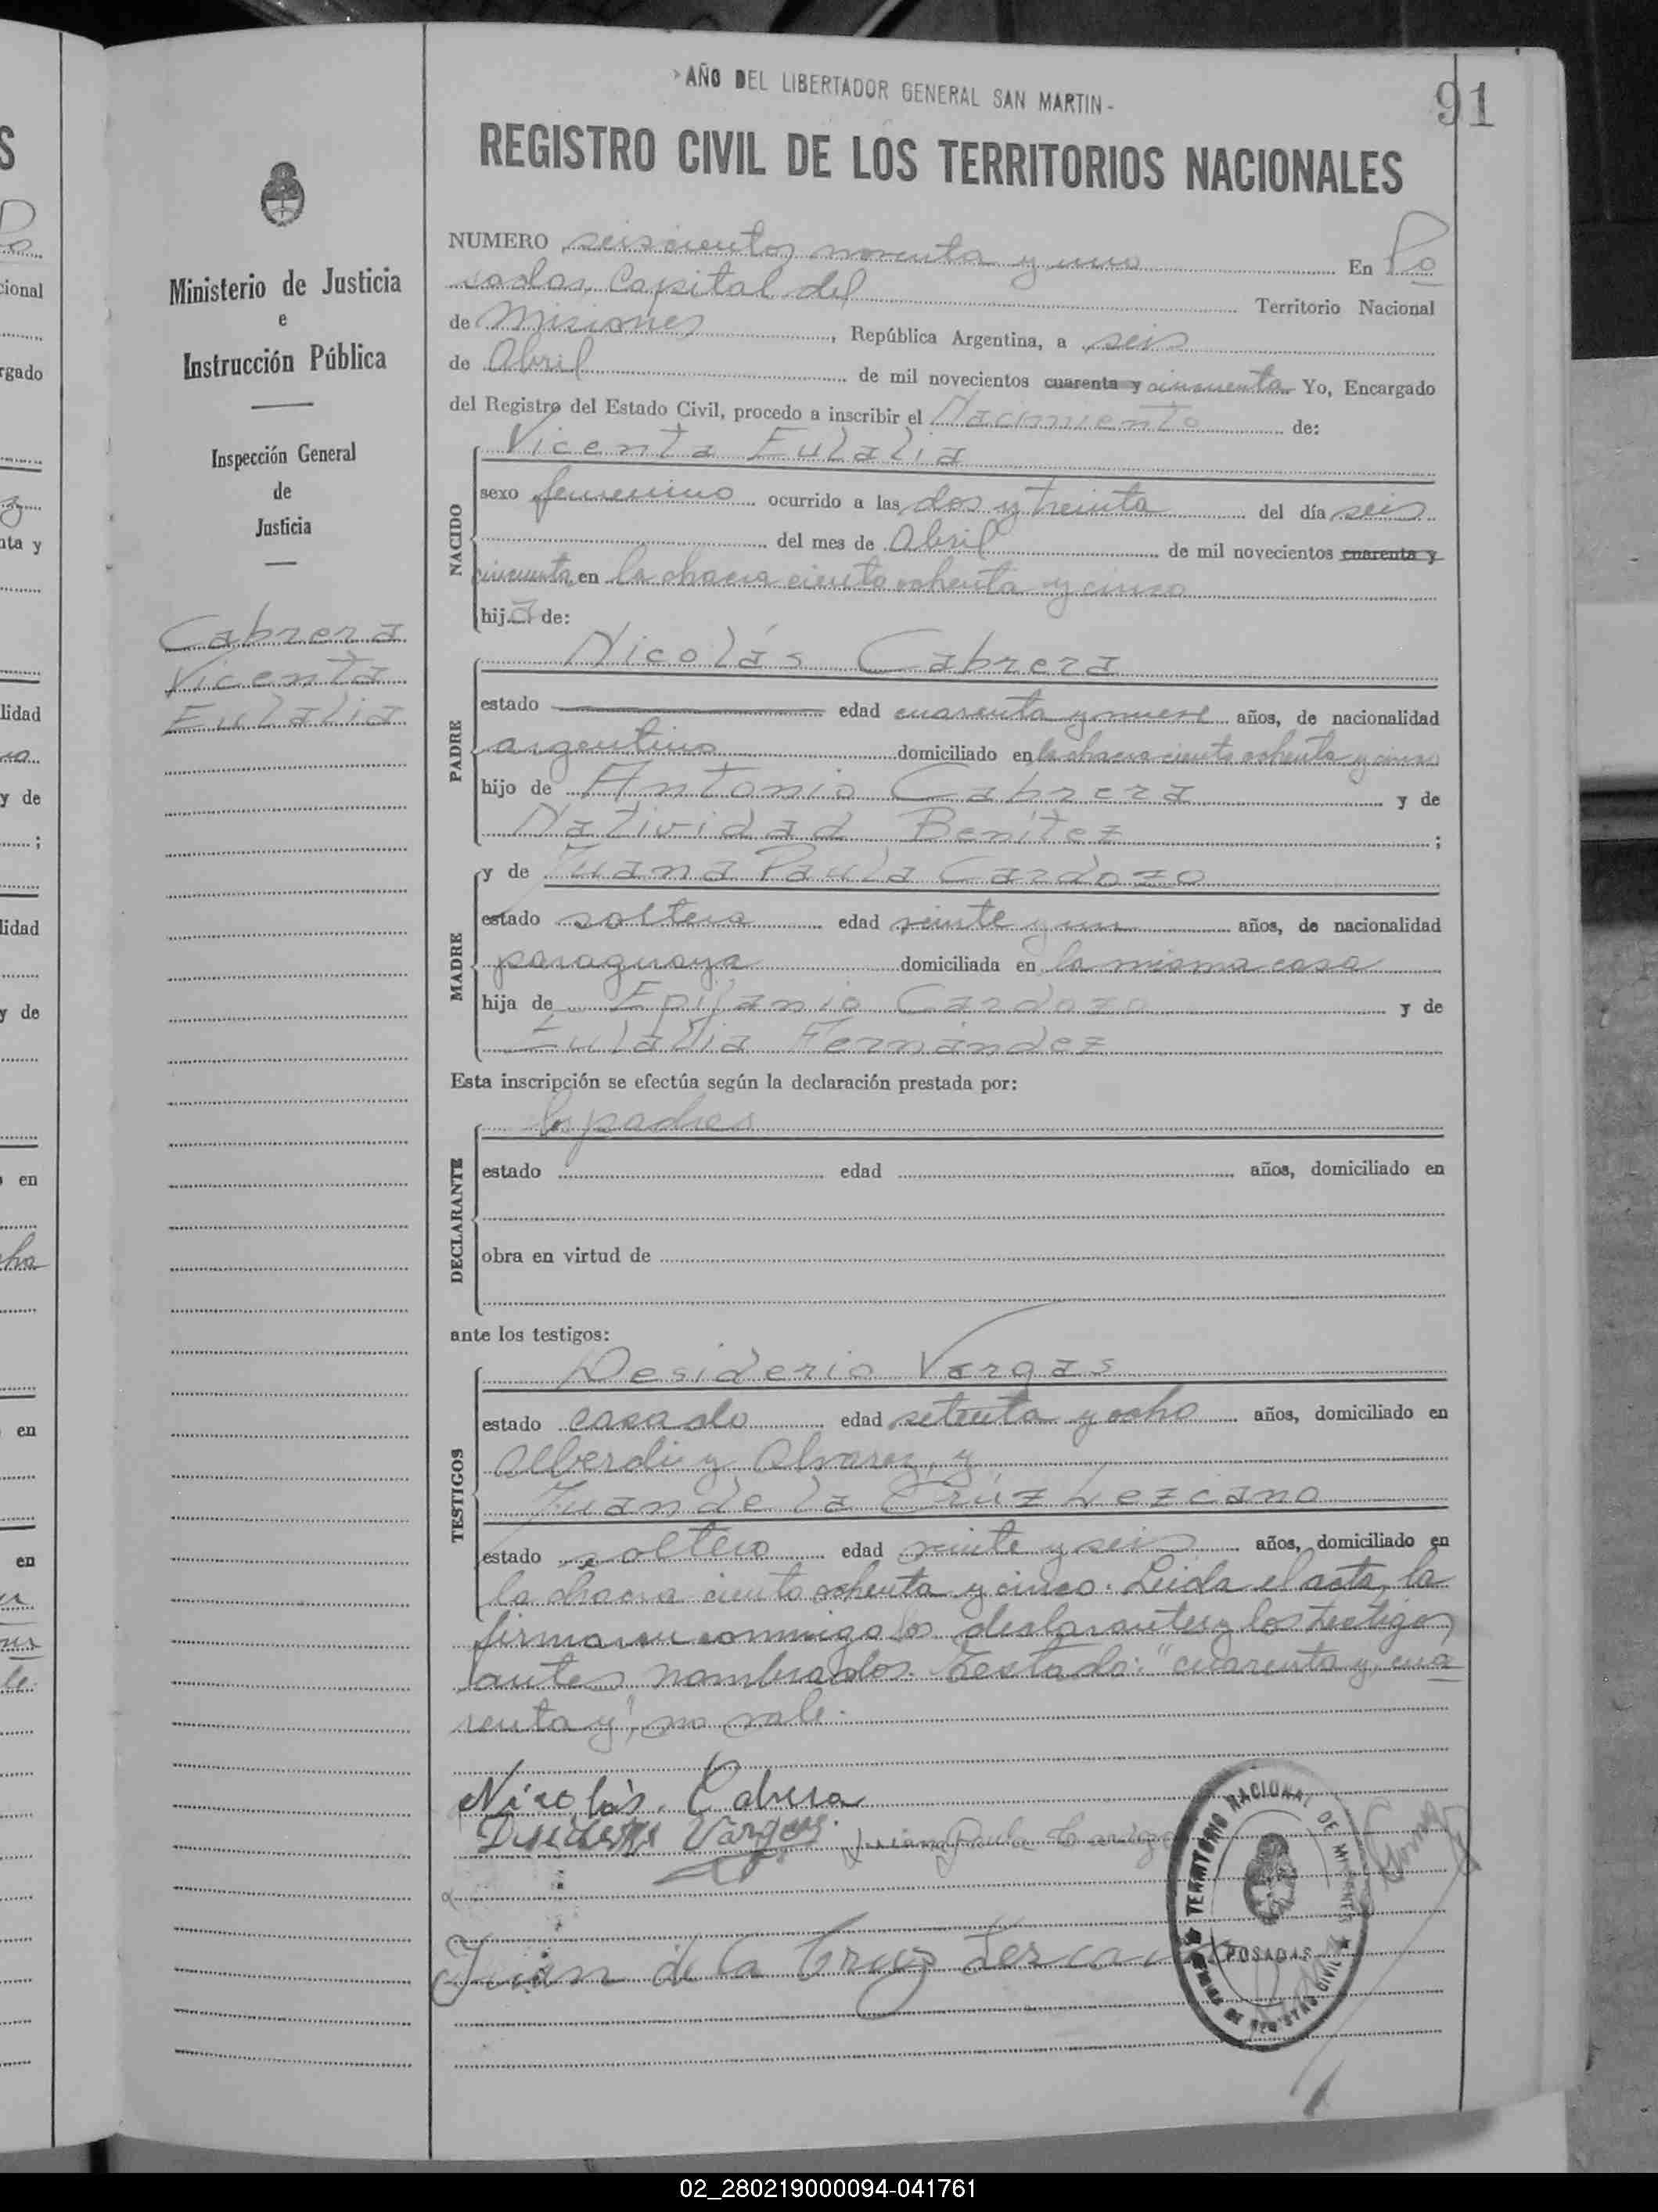 »AÑO DEL LIBERTADOR GENERAL SAN MARTIN-
91
REGISTRO CIVIL DE LOS TERRITORIOS NACIONALES
Ministerio de Justicia
e
Instrucción Pública
Inspección General
de
Justicia
Cabrera
Vicenta
Eulalia
NUMERO seiscientos noventa y uno En Po
sadas, Capital del Territorio Nacional
de Misiones, República Argentina, a seis
de Abril de mil novecientos cuarenta y cincuenta Yo, Encargado
del Registro del Estado Civil, procedo a inscribir el Nacimiento de:
NACIDO
Vicenta Eulalia
sexo femenino ocurrido a las dos y treinta del día seis
del mes de Abril de mil novecientos cuarenta y
cincuenta en la chacra ciento ochenta y cinco
hija de:
PADRE
Nicolás Cabrera
estado edad cuarenta y nueve años, de nacionalidad
argentino domiciliado en la chacra ciento ochenta y cinco
hijo de Antonio Cabrera y de
Natividad Benítez ;
MADRE
y de Juana Paula Cardozo
estado soltera edad veinte y un años, de nacionalidad
paraguaya domiciliada en la misma casa
hija de Epifanio Cardozo y de
Eulalia Fernández
Esta inscripción se efectúa según la declaración prestada por:
DECLARANTE
los padres
estado edad años, domiciliado en
obra en virtud de
ante los testigos:
TESTIGOS
Desiderio Vargas
estado casado edad setenta y ocho años, domiciliado en
Alberdi y Alvarez, y
Juan de la Cruz Lezcano
estado soltero edad veinte y seis años, domiciliado en
la chacra ciento ochenta y cinco. Leída el acta, la
firmaron conmigo los declarantes y los testigos
antes nombrados. Testado: "cuarenta y, cua
renta y", no vale.
Nicolás Cabrera
Desiderio Vargas Juana Paula
Juan de la Cruz Lezcano
TERRITORIO NACIONAL DE MISIONES
POSADAS
REGISTRO CIVIL
02_280219000094-041761